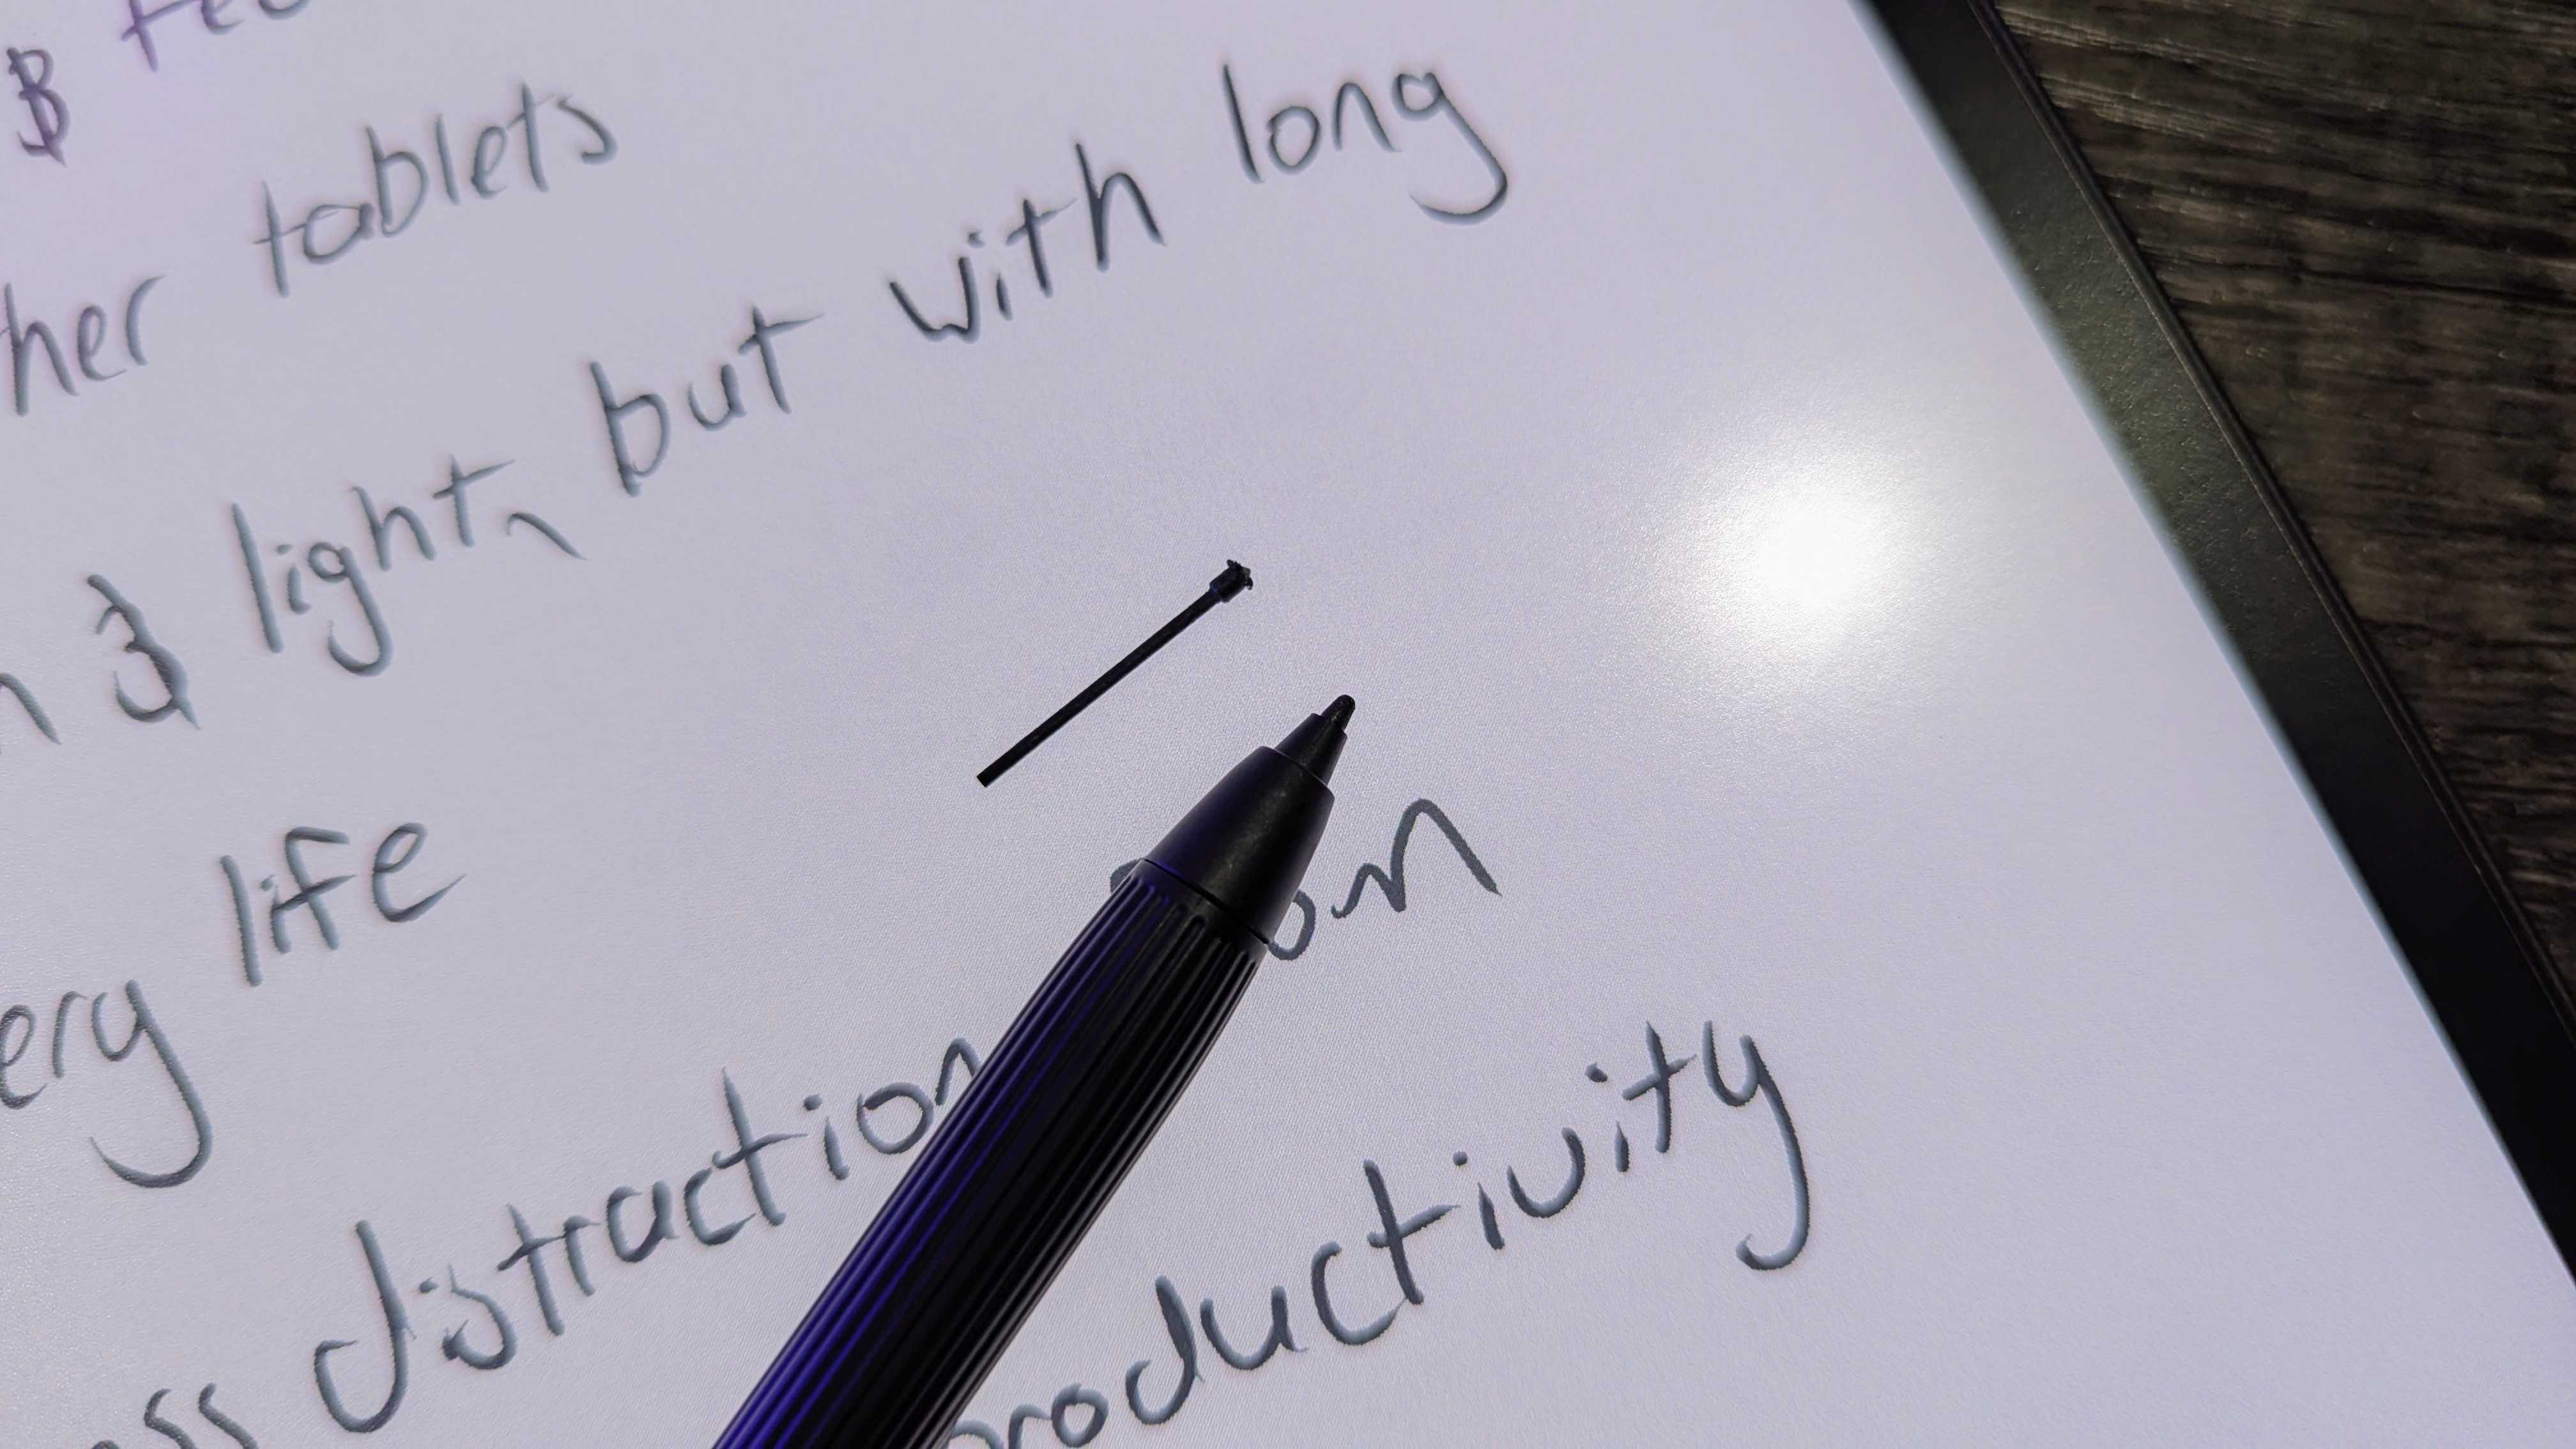 &
her tablets
n & light, but with long
ery life
ss distraction on
productivity